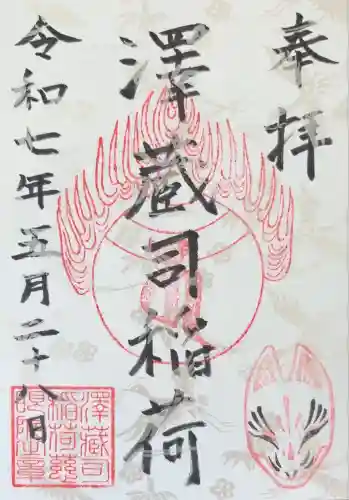 奉拝
澤蔵司稲荷
令和七年五月二十八日
澤蔵司
稲荷